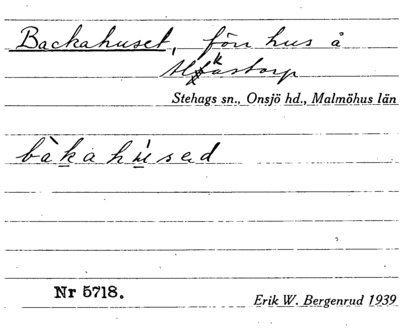 Backahuset, förr hus å
Stehags sn., Onsjö hd., Malmöhus län
bàkahùsed
Nr 5718.
Erik W. Bergenrud 1939